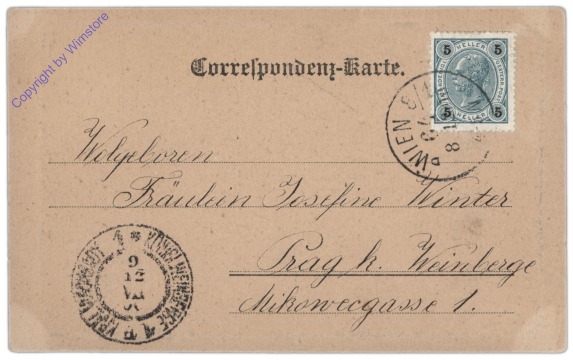 Copyright by Wimstore
Correspondenz-Karte.
5 HELLER 5
5 HELLER 5
WIEN
8
Wolgeboren
Fräulein Josefine Winter
Prag k. Weinberge
Mikowecgasse 1.
9
12
VII